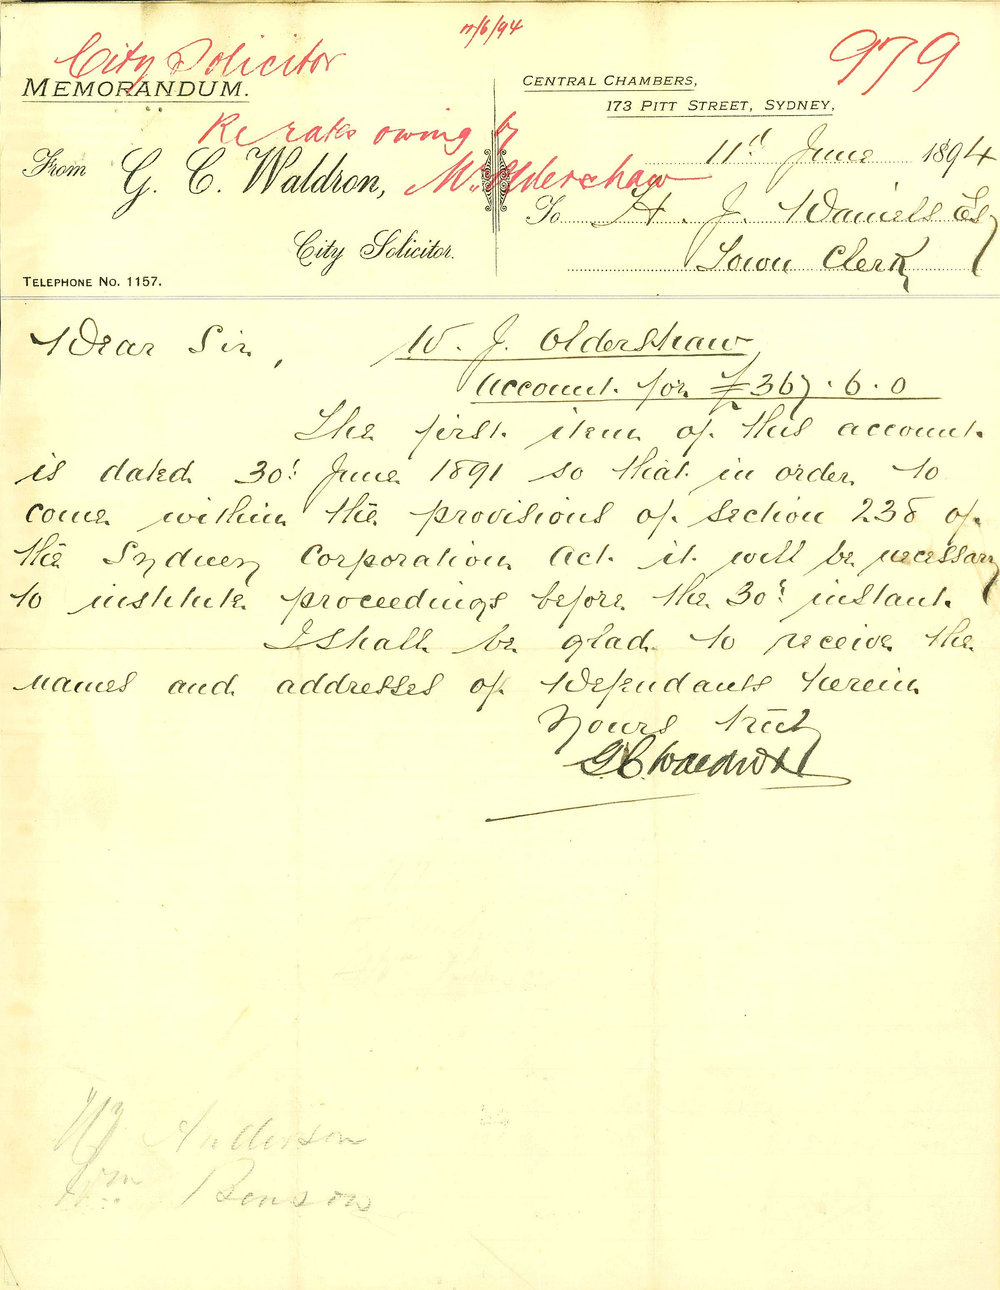 City Solicitor
11/6/94
979
MEMORANDUM.
CENTRAL CHAMBERS,
173 PITT STREET, SYDNEY,
Re rates owing by
W. Oldershaw
11th June 1894
From G. C. Waldron,
City Solicitor.
To H. J. Daniels Esq
Town Clerk
TELEPHONE No. 1157.
Dear Sir,
W. J. Oldershaw
Account for £367.6.0
The first item of this account
is dated 30t June 1891 so that in order to
come within the provisions of section 238 of
the Sydney Corporation Act it will be necessary
to institute proceedings before the 30t instant.
I shall be glad to receive the
names and addresses of Defendants herein
Yours truly
G C Waldron
Anderson
Wm Benson